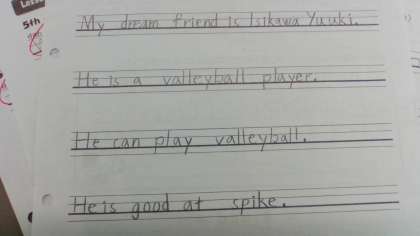 5th
My dream friend is Isikawa Yuuki.
He is a valleyball player.
He can play valleyball.
He is good at spike.